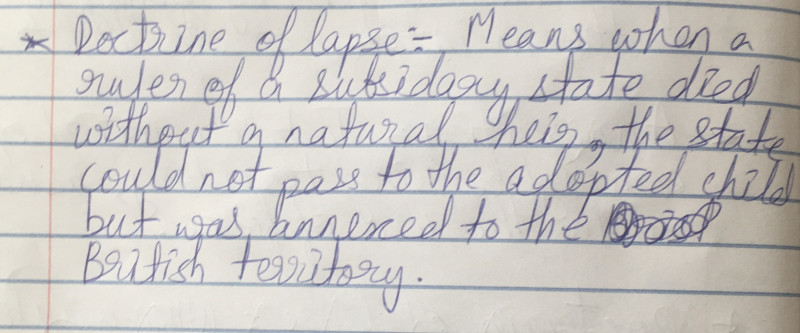 * Doctrine of lapse:- Means when a
ruler of a subsidary state died
without a natural heir, the state
could not pass to the adopted child
but was annexed to the
British territory.